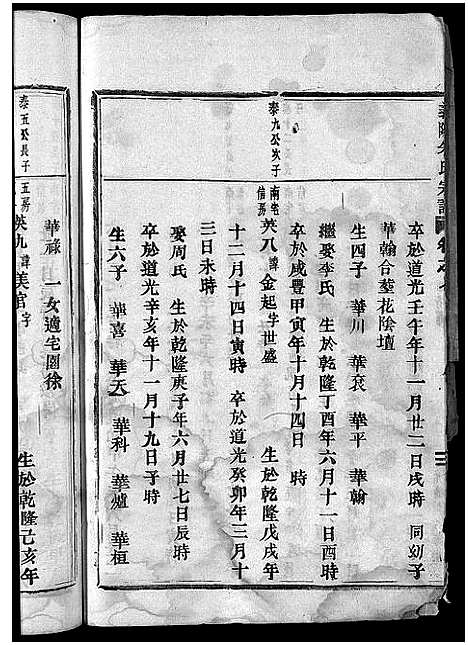 卒於道光壬午年十一月廿二日戌時 同幼子
華翰合塟花陰壇
生四子 華川 華袞 華平 華翰
繼娶李氏 生於乾隆丁酉年六月十一日酉時
卒於咸豐甲寅年十月十四日 時
泰九公次子 南宅信房英八諱金起字世盛 生於乾隆戊戌年
十二月十四日寅時 卒於道光癸卯年三月十
三日未時
娶周氏 生於乾隆庚子年六月廿七日辰時
卒於道光辛亥年十一月十九日子時
生六子 華喜 華天 華科 華爐 華桓
華祿 一女適宅園徐
泰五公長子 五房英九諱美官字 生於乾隆己亥年